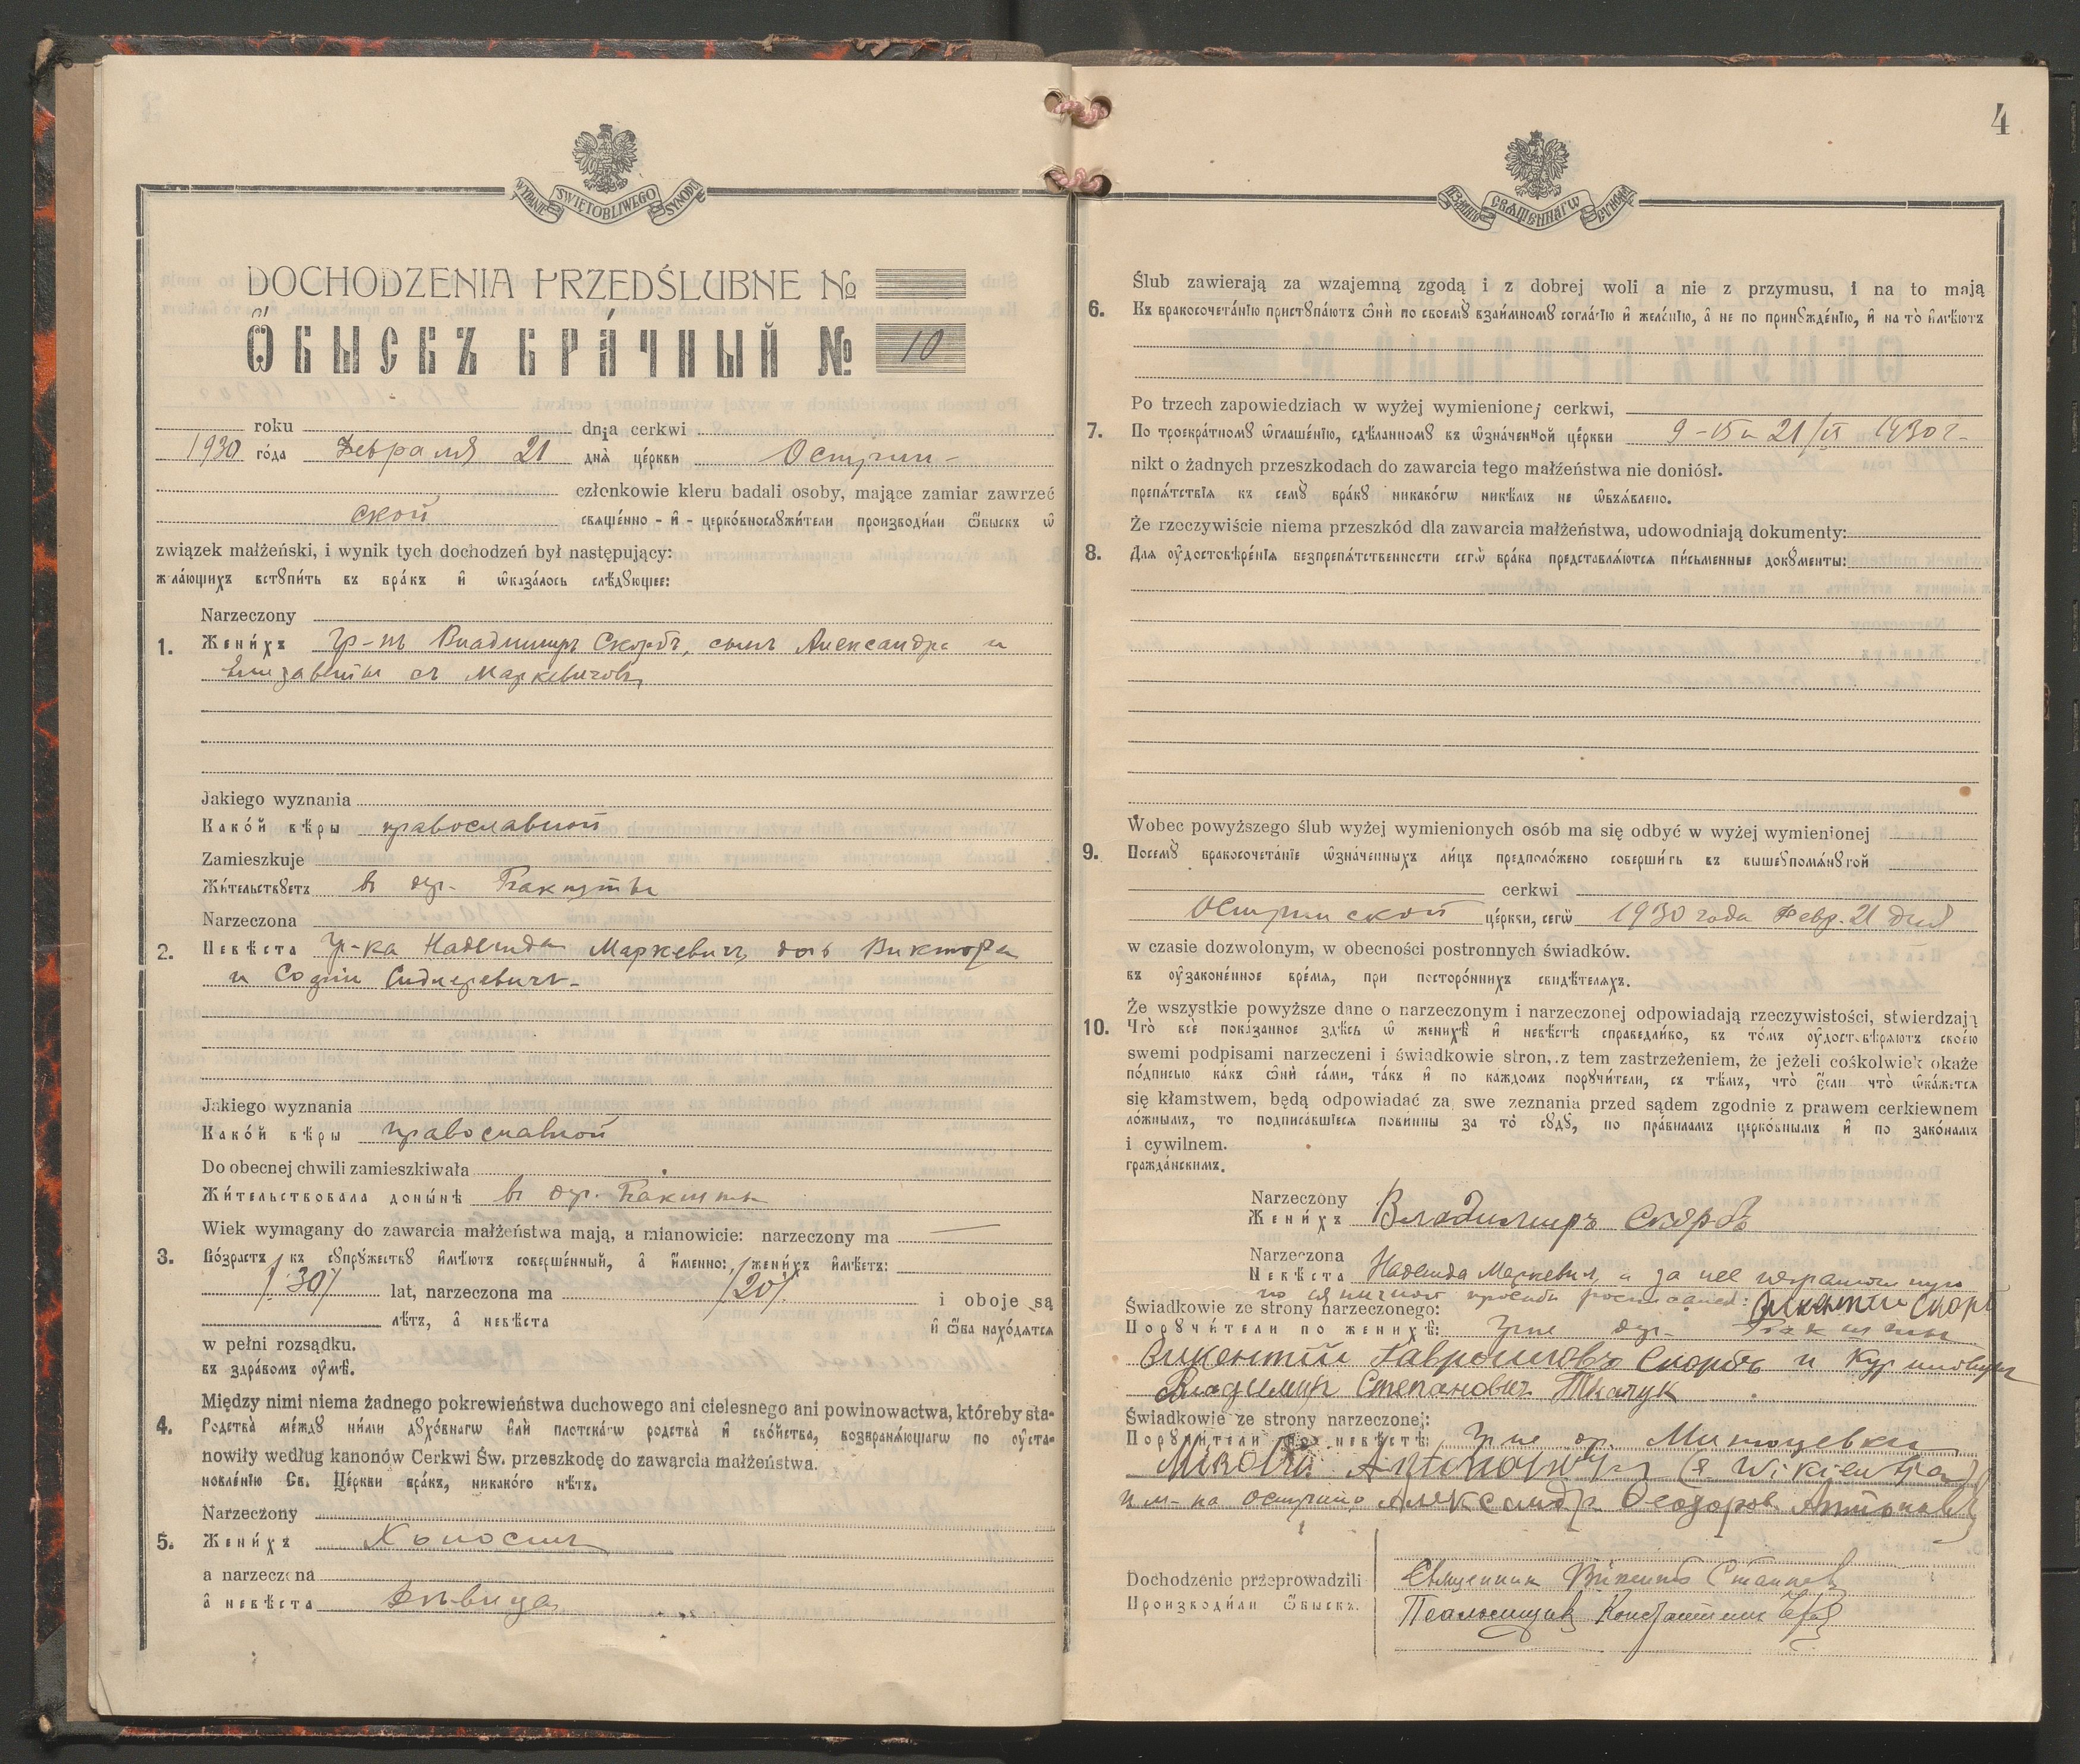 WYDANIE ŚWIĘTOBLIWEGO SYNODU
DOCHODZENIA PRZEDŚLUBNE №
Ѻ҆БЫСКЪ БРА́ЧНЫЙ № 10
roku dnia cerkwi
1930 го́да Февраля 21 днѧ̀ це́ркви Острин-
członkowie kleru badali osoby, mające zamiar zawrzeć
ской свѧще́нно - и҆ - церко́внослꙋжи́тели производи́ли ѻ҆́быскъ ѡ҆
związek małżeński, i wynik tych dochodzeń był następujący:
ж лающихъ встꙋпи́ть въ бра́къ и҆ ѡ҆каза́лось слѣ́дꙋющее:
Narzeczony
1. Жени́хъ Гр-нъ Владимиръ Скорбъ, сынъ Александра и
Елизаветы съ Маркевичовъ
Jakiego wyznania
Како́й вѣры православной
Zamieszkuje
Жи́тельствꙋетъ въ дер. Бакшты
Narzeczona
2. Невѣ́ста Гр-ка Надежда Маркевичъ, дочь Виктора
и Софіи
Jakiego wyznania
Како́й вѣры православной
Do obecnej chwili zamieszkiwała
Жи́тельствовала доны́нѣ въ дер. Бакшты
Wiek wymagany do zawarcia małżeństwa mają, a mianowicie: narzeczony ma —
3. Во́зрастъ къ сꙋпрꙋ́жествꙋ и҆мѣ́ютъ соверше́нный, а҆ и҆́менно: жени́хъ и҆мѣ́етъ:
/30/ lat, narzeczona ma /20/ i oboje są
лѣтъ, а҆ невѣ́ста и҆ ѻ҆́ба нахо́дѧтсѧ
w pełni rozsądku.
въ здра́вомъ ᲂу҆мѣ̀.
Między nimi niema żadnego pokrewieństwa duchowego ani cielesnego ani powinowactwa, któreby sta-
4. Родства̀ ме́ждꙋ ни́ми дꙋхо́внагѡ и҆лѝ плотска́гѡ родства̀ и҆ сво́йства, возбранѧ́ющагѡ по ᲂу҆ста-
nowiły według kanonów Cerkwi Św. przeszkodę do zawarcia małżeństwa.
новле́нїю Св. Це́ркви бра́къ, никако́го нѣ́тъ.
Narzeczony
5. Жени́хъ Холостъ
a narzeczona
а҆ невѣ́ста дѣвица
4
Ślub zawierają za wzajemną zgodą i z dobrej woli a nie z przymusu, i na to mają
6. Къ бракосочета́нїю пристꙋпа́ютъ ѻ҆нѝ по своемꙋ̀ взаи́мномꙋ согла́сїю и҆ жела́нїю, а҆ не по принꙋжде́нїю, и҆ на то̀ и҆мѣ́ютъ
Po trzech zapowiedziach w wyżej wymienionej cerkwi,
7. По троекра́тномꙋ ѡ҆глаше́нїю, сдѣ́ланномꙋ въ ѡ҆зна́ченной це́ркви 9-15 и 21/II 1930 г.
nikt o żadnych przeszkodach do zawarcia tego małżeństwa nie doniósł.
препѧ́тствїѧ къ семꙋ̀ бра́кꙋ никако́гѡ никѣ́мъ не ѡ҆б̾ѧ́влено.
Że rzeczywiście niema przeszkód dla zawarcia małżeństwa, udowodniają dokumenty:
8. Длѧ ᲂу҆достовѣре́нїѧ безпрепѧ́тственности сегѡ̀ бра́ка представлѧ́ютсѧ пи́сьменные докꙋме́нты:
Wobec powyższego ślub wyżej wymienionych osób ma się odbyć w wyżej wymienionej
9. Посемꙋ̀ бракосочета́нїе ѡ҆зна́ченныхъ ли́цъ предполо́жено соверши́ть въ вышеꙋпомѧ́нꙋтой
cerkwi
Остринской це́ркви, сегѡ̀ 1930 года Февр. 21 дня
w czasie dozwolonym, w obecności postronnych świadków.
въ ᲂу҆зако́ненное вре́мѧ, при посторо́ннихъ свидѣ́телѧхъ.
Że wszystkie powyższe dane o narzeczonym i narzeczonej odpowiadają rzeczywistości, stwierdzają
10. Что̀ всѐ пока́занное здѣ́сь ѡ҆ женихѣ̀ и҆ невѣ́стѣ справедли́во, въ то́мъ ᲂу҆достовѣрѧ́ютъ свое́ю
swemi podpisami narzeczeni i świadkowie stron, z tem zastrzeżeniem, że jeżeli cośkolwiek okaże
по́дписью ка́къ ѻ҆нѝ са́ми, та́къ и҆ по каждомъ порꙋчи́тели, съ тѣ́мъ, что̀ є҆́сли что̀ ѡ҆ка́жетсѧ
się kłamstwem, będą odpowiadać za swe zeznania przed sądem zgodnie z prawem cerkiewnem
ло́жнымъ, то подписа́вшїесѧ пови́нны за то̀ сꙋдꙋ̀, по пра́виламъ церко́внымъ и҆ по зако́намъ
i cywilnem.
гражда́нскимъ.
Narzeczony
Жени́хъ Владимиръ Скорбъ
Narzeczona
Невѣ́ста Надежда Маркевичъ, а за нее неграмотную
по ея личной просьбѣ росписался: Викентій Скорб
Świadkowie ze strony narzeczonego:
Порꙋчи́тели по женихѣ̀: Гр-не дер. Бакшты
Викентій Гавриловъ Скорбъ и
Владимир Степановичъ Ткачук
Świadkowie ze strony narzeczonej:
Порꙋчи́тели по невѣ́стѣ: Гр-не др.
и м-ка Острино Александръ Феодоров
Dochodzenie przeprowadzili
Производи́ли ѻ҆́быскъ.
Священник
Псаломщикъ Константинъ